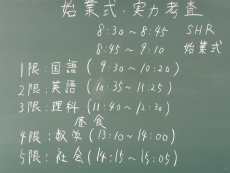 始業式・実力考査
8:30～8:45 SHR
8:45～9:10 始業式
1限:国語(9:30～10:20)
2限:英語(10:35～11:25)
3限:理科(11:40～12:30)
昼食
4限:数学(13:10～14:00)
5限:社会(14:15～15:05)